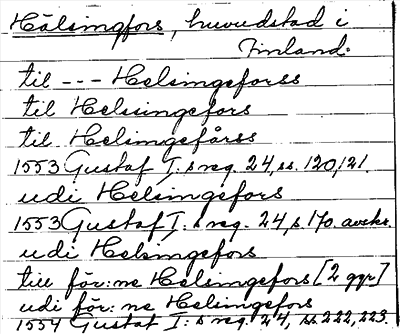 Hälsingfors, huvudstad i
Finland.
til --- Helsingeforss
till Helssingefors
till Helsingefårss
1553 Gustaf I:s reg. 24, ss. 120, 121.
udi Helsingefors
1553 Gustaf I:s reg. 24, s. 170. avskr.
udi Helsingefors
till för:ne Helsingefors [2 ggr]
udi för:ne Helsingefors
1554 Gustaf I:s reg. 24, ss. 222, 223.